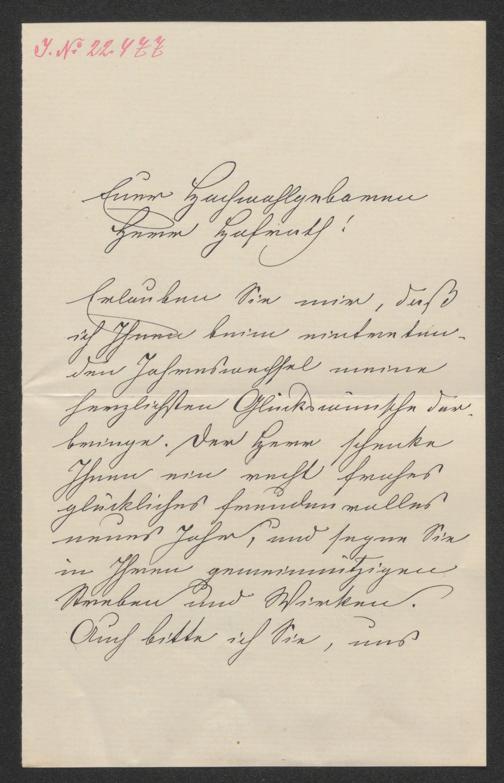 J. № 22.477
Euer Hochwohlgeboren
Herr Hofrath!
Erlauben Sie mir, daß
ich Ihnen beim eintreten-
den Jahreswechsel meine
herzlichsten Glückswünsche dar-
bringe. Der Herr schenke
Ihnen ein recht frohes
glückliches freudenvolles
neues Jahr, und segne Sie
in Ihren gemeinnützigen
Streben und Wirken.
Auch bitte ich Sie, uns